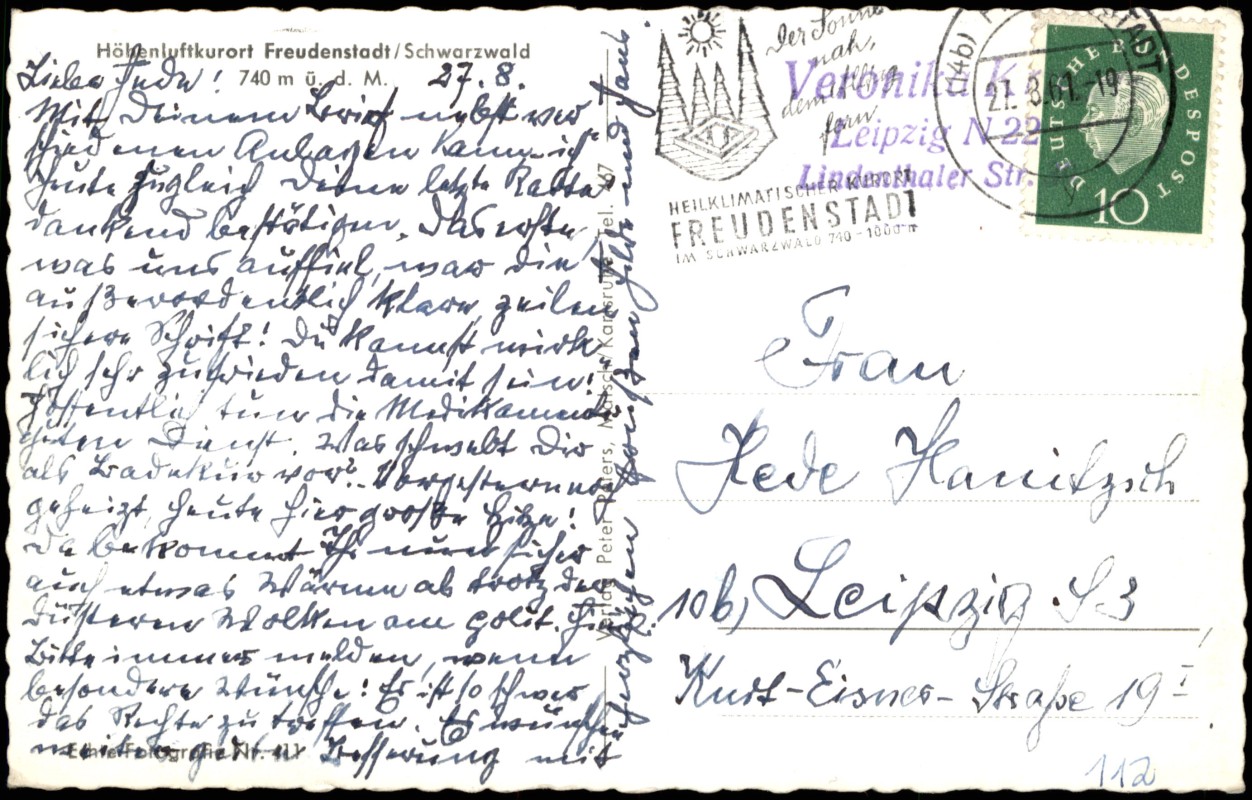 Höhenluftkurort Freudenstadt/Schwarzwald
740 m ü. d. M.
27. 8.
Liebe Hede!
Mit Deinem Brief nebst ver
schiedenen Anlagen kann ich
heute zugleich Deine letzte Karte
dankend bestätigen. Das erste
was uns auffiel, war die
außerordentlich klare, zeilen
sichere Schrift! Du kannst wirk
lich sehr zufrieden damit sein!
Hoffentlich tun die Medikamente
guten Dienst. Was schwebt Dir
als Badekur vor? Vorgestern noch
geheizt, heute hier große Hitze!
da bekommt Ihr nun sicher
auch etwas Wärme ab trotz der
düsteren Wolken am polit.
Bitte immer melden, wenn
besondere Wünsche! Es ist so schwer
das Rechte zu treffen. Es wünschen
weiter gute Besserung mit
herzlichen
und Hans
Echte Fotografie Nr. 411
Verlag Peter Peters, Malsch/Karlsruhe, Tel. 467
Der Sonne
nah,
dem Alltag
fern.
HEILKLIMATISCHER KURORT
FREUDENSTADT
IM SCHWARZWALD 740-1000 m
Veronika
Leipzig N 22
Lindenthaler Str.
(14b) FREUDENSTADT
27.8.61.-19
DEUTSCHE BUNDESPOST
10
Frau
Hede Hanitzsch
10b) Leipzig S3
Kurt-Eisner-Straße 19 I
112